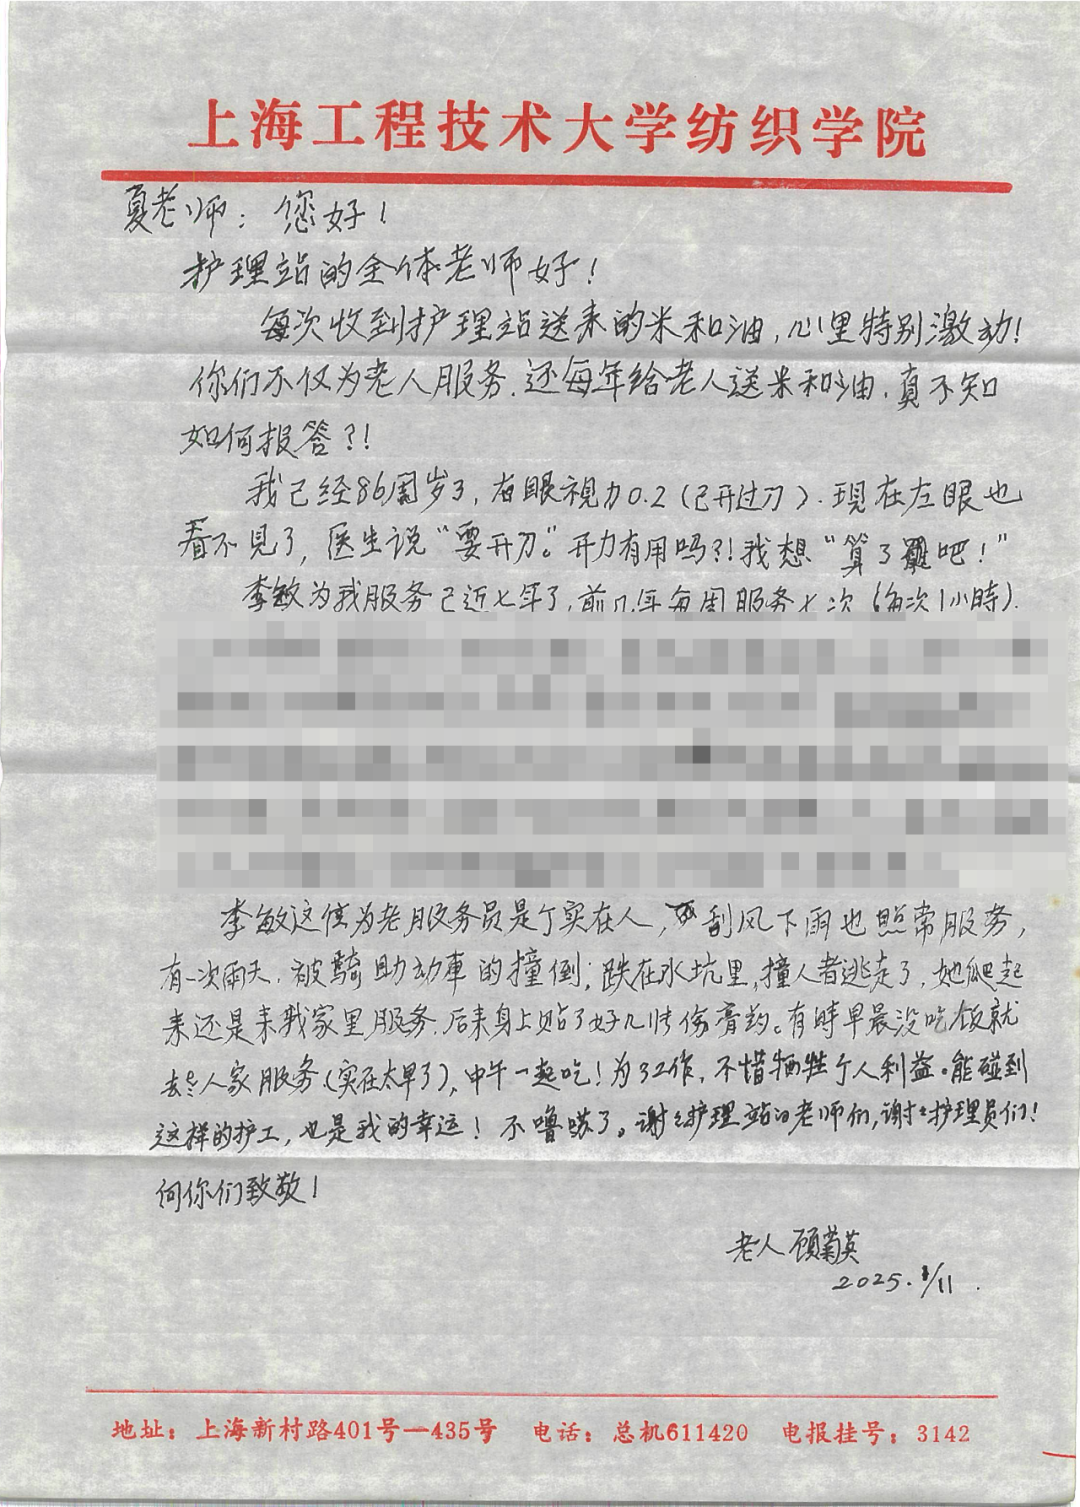 上海工程技术大学纺织学院
夏老师：您好！
护理站的全体老师好！
每次收到护理站送来的米和油，心里特别激动！
你们不仅为老人服务，还每年给老人送米和油，真不知
如何报答？！
我已经86周岁了，右眼视力0.2（已开过刀）．现在左眼也
看不见了，医生说“要开刀。”开刀有用吗？！我想“算了罷吧！”
李敏为我服务已近七年了，前几年每周服务七次（每次1小時）．
李敏这位为老服务员是个实在人，刮风下雨也照常服务，
有一次雨天，被騎助动車的撞倒；跌在水坑里，撞人者逃走了，她爬起
来还是来我家里服务，后来身上贴了好几张伤膏药。有時早晨没吃饭就
去人家服务（实在太早了），中午一起吃！为了工作，不惜牺牲个人利益。能碰到
这样的护工，也是我的幸运！不噜嗦了。谢谢护理站的老师们，谢谢护理员们！
向你们致敬！
老人 顾菊英
2025.1/11．
地址：上海新村路401号—435号 电话：总机611420 电报挂号：3142